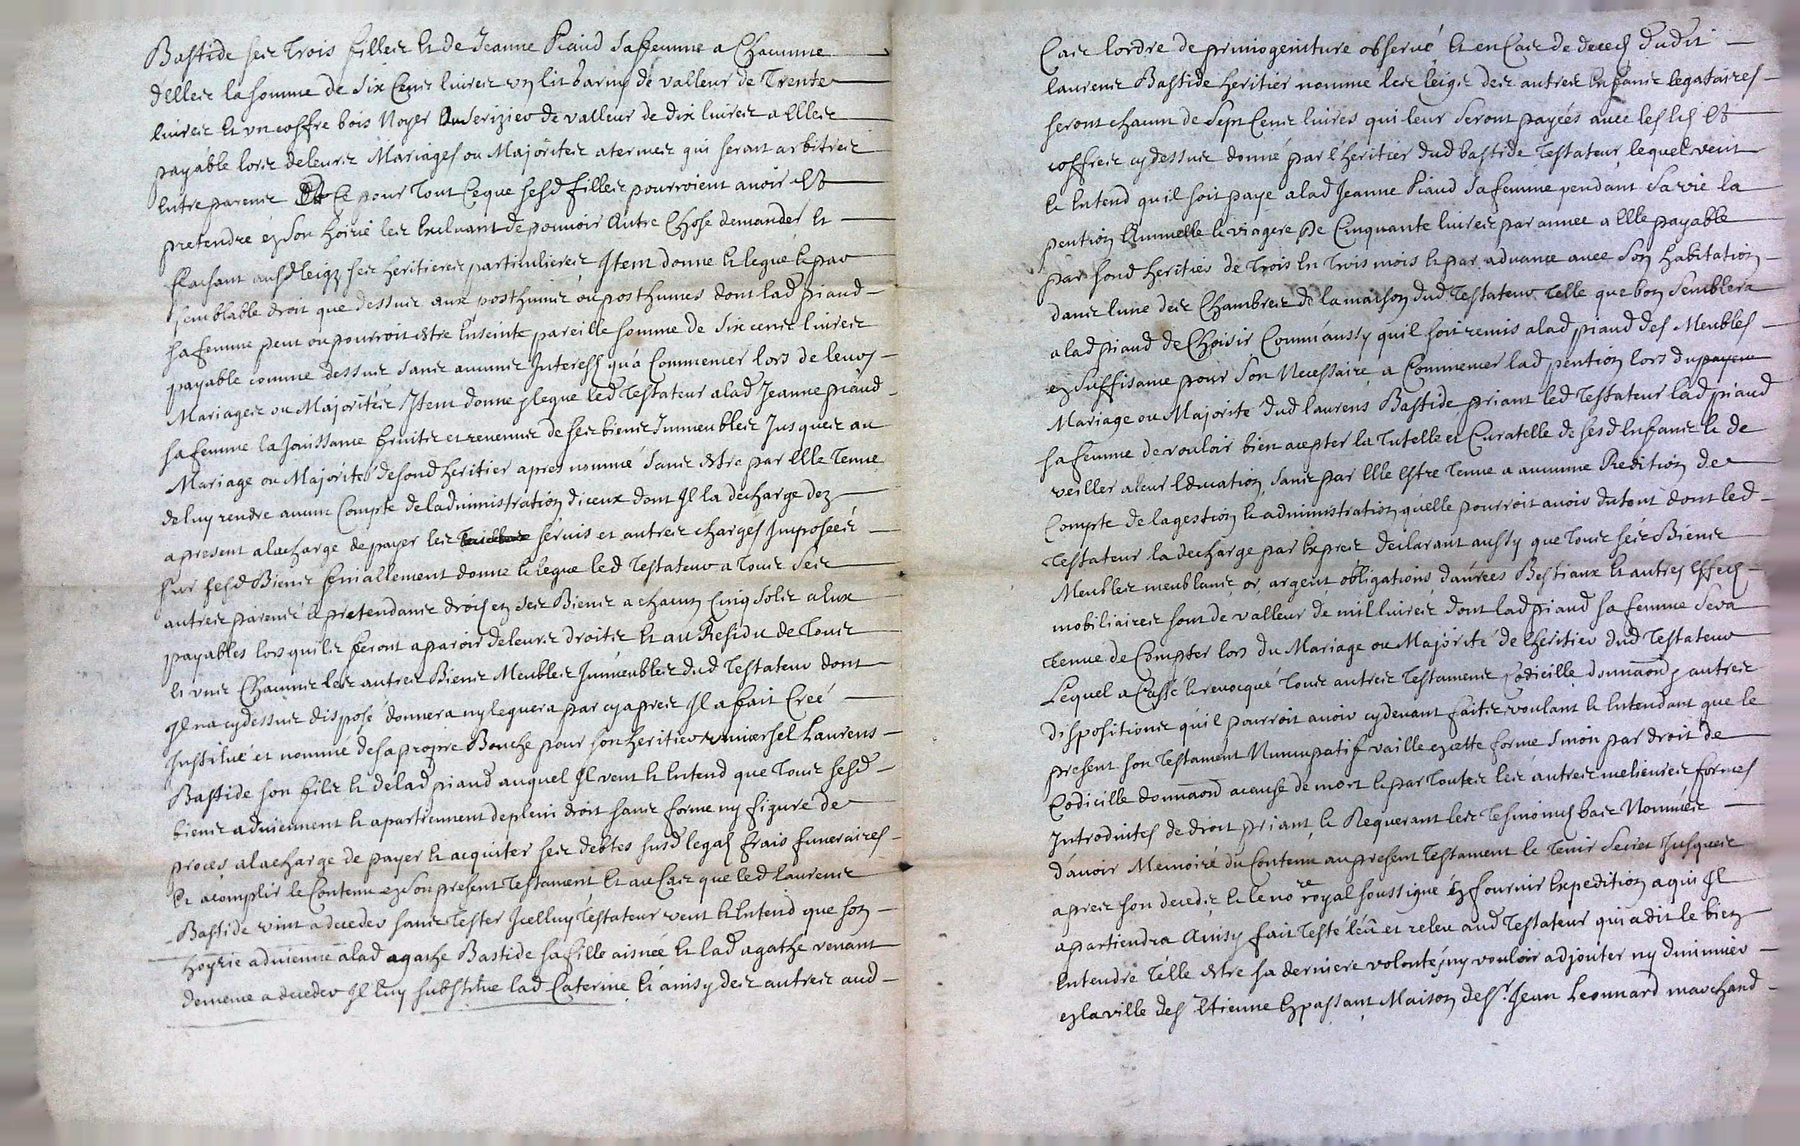 Bastide ses Trois filles & de Jeanne Piaud sa femme a Chacune
d'elles la somme de Six Cens livres un lit garny de valleur de Trente
livres & un coffre bois Noyer ou serizier de valleur de dix livres a Elles
payable lors de leurs Mariages ou Majorites a termes qui seront arbitrés
Entre parens Et ce pour Tout Ceque sesd filles pourroient avoir Et
pretendre en son hoirie les Excluant de pouvoir Autre Chose demander Et
faisant ausd leigz ses heritieres particulieres Item donne & legue & par
semblable droit que dessus aux posthume ou posthumes dont lad piaud
sa femme peut ou pourroit estre Enseinte pareille somme de six cens livres
payable comme dessus sans aucuns Interests qu'a Commencer lors de leurs
Mariages ou Majorités Item donne & legue led Testateur a lad Jeanne piaud
sa femme la Jouissance fruits et revenus de ses biens Immeubles Jusques au
Mariage ou Majorité de sond heritier apres nommé sans estre par Elle Tenue
de luy rendre aucun Compte de ladministration diceux dont Il la decharge dez
a present a la charge de payer les servis et autres charges Imposées
sur sesd Biens Semiallement donne & legue led Testateur a Tous ses
autres parens & pretendans droits en ses Biens a chacun Cinq Solz a Eux
payables lors quils feront aparoir de leurs droits & au Residu de Tous
& uns Chacuns les autres Biens Meubles Immeubles dud Testateur dont
Il na cy dessus disposé donnera ny leguera par cy apres Il a fait Creé
Institué et nommé de sa propre Bouche pour son heritier universel Laurens
Bastide son fils & de lad piaud auquel Il veut & Entend que Tous sesd
biens adviennent & apartiennent de plein droit sans forme ny figure de
proces a la charge de payer & acquiter ses debtes susd legats frais funeraires
Et acomplir le Contenu en son present Testament & au Cas que led laurens
Bastide vint a deceder sans Tester Icelluy Testateur veut & Entend que son
hoyrie advienne a lad agathe Bastide sa fille aisnée & lad agathe venant
de meme a deceder Il luy substitue lad Caterine & ainsy des autres aud
Cas lordre de primogeniture observé & en Cas de deces dudit
laurens Bastide heritier nomme les leigs des autres Enfans legataires
seront chacun de Sept Cens livres qui leur Seront payées avec les lis Et
coffres cy dessus donné par l'heritier dud bastide Testateur lequel veut
& Entend quil soit paye a lad Jeanne Piaud Sa femme pendant Sa vie la
pention Annuelle & viagere De Cinquante livres par annee a Elle payable
par sond heritier de Trois En Trois mois & par advance avec Son habitation
dans lune des Chambres de la maison dud Testateur Telle que bon Semblera
a lad piaud de Choisir Comm'aussy qu'il soit remis a lad piaud des Meubles
en suffisance pour Son Necessaire a Commencer lad pention lors du
Mariage ou Majorité dud laurens Bastide priant led Testateur lad piaud
sa femme de vouloir bien accepter la Tutelle et Curatelle de sesd Enfans & de
veiller a leur Education, Sans par Elle Estre Tenue a aucune Redition de
Compte de la gestion & administration qu'elle pourroit avoir du tout dont led
Testateur la decharge par Expres declarant aussy que Tous ses Biens
Meubles meublans or argent obligations danrées Bestiaux & autres Effects
mobiliaires sont de valleur de mil livres dont lad piaud sa femme sera
Tenue de Compter lors du Mariage ou Majorité de l'heritier dud Testateur
Lequel a Cassé & revocqué Tous autres Testamens Codicille donnaõns & autres
dispositions qu'il pourroit avoir cy devant faites voulant & Entendant que le
present son Testament Nuncupatif vaille en cette forme sinon par droit de
Codicille donnaõn a cause de mort & par Toutes les autres melieures formes
Introduites de droit priant & Requerant les Tesmoins bas Nommés
d'avoir Memoire du Contenu au present Testament le Tenir Secret Jusques
apres son deceds & le no.re royal soussigné En fournir Expedition a qui Il
apartiendra Ainsy fait Teste leu et releu aud Testateur qui a dit le bien
Entendre Telle Estre sa derniere volonté, ny vouloir adjouter ny diminuer
en la ville de S.t Etienne En passant Maison de S.r Jean Leonnard marchand